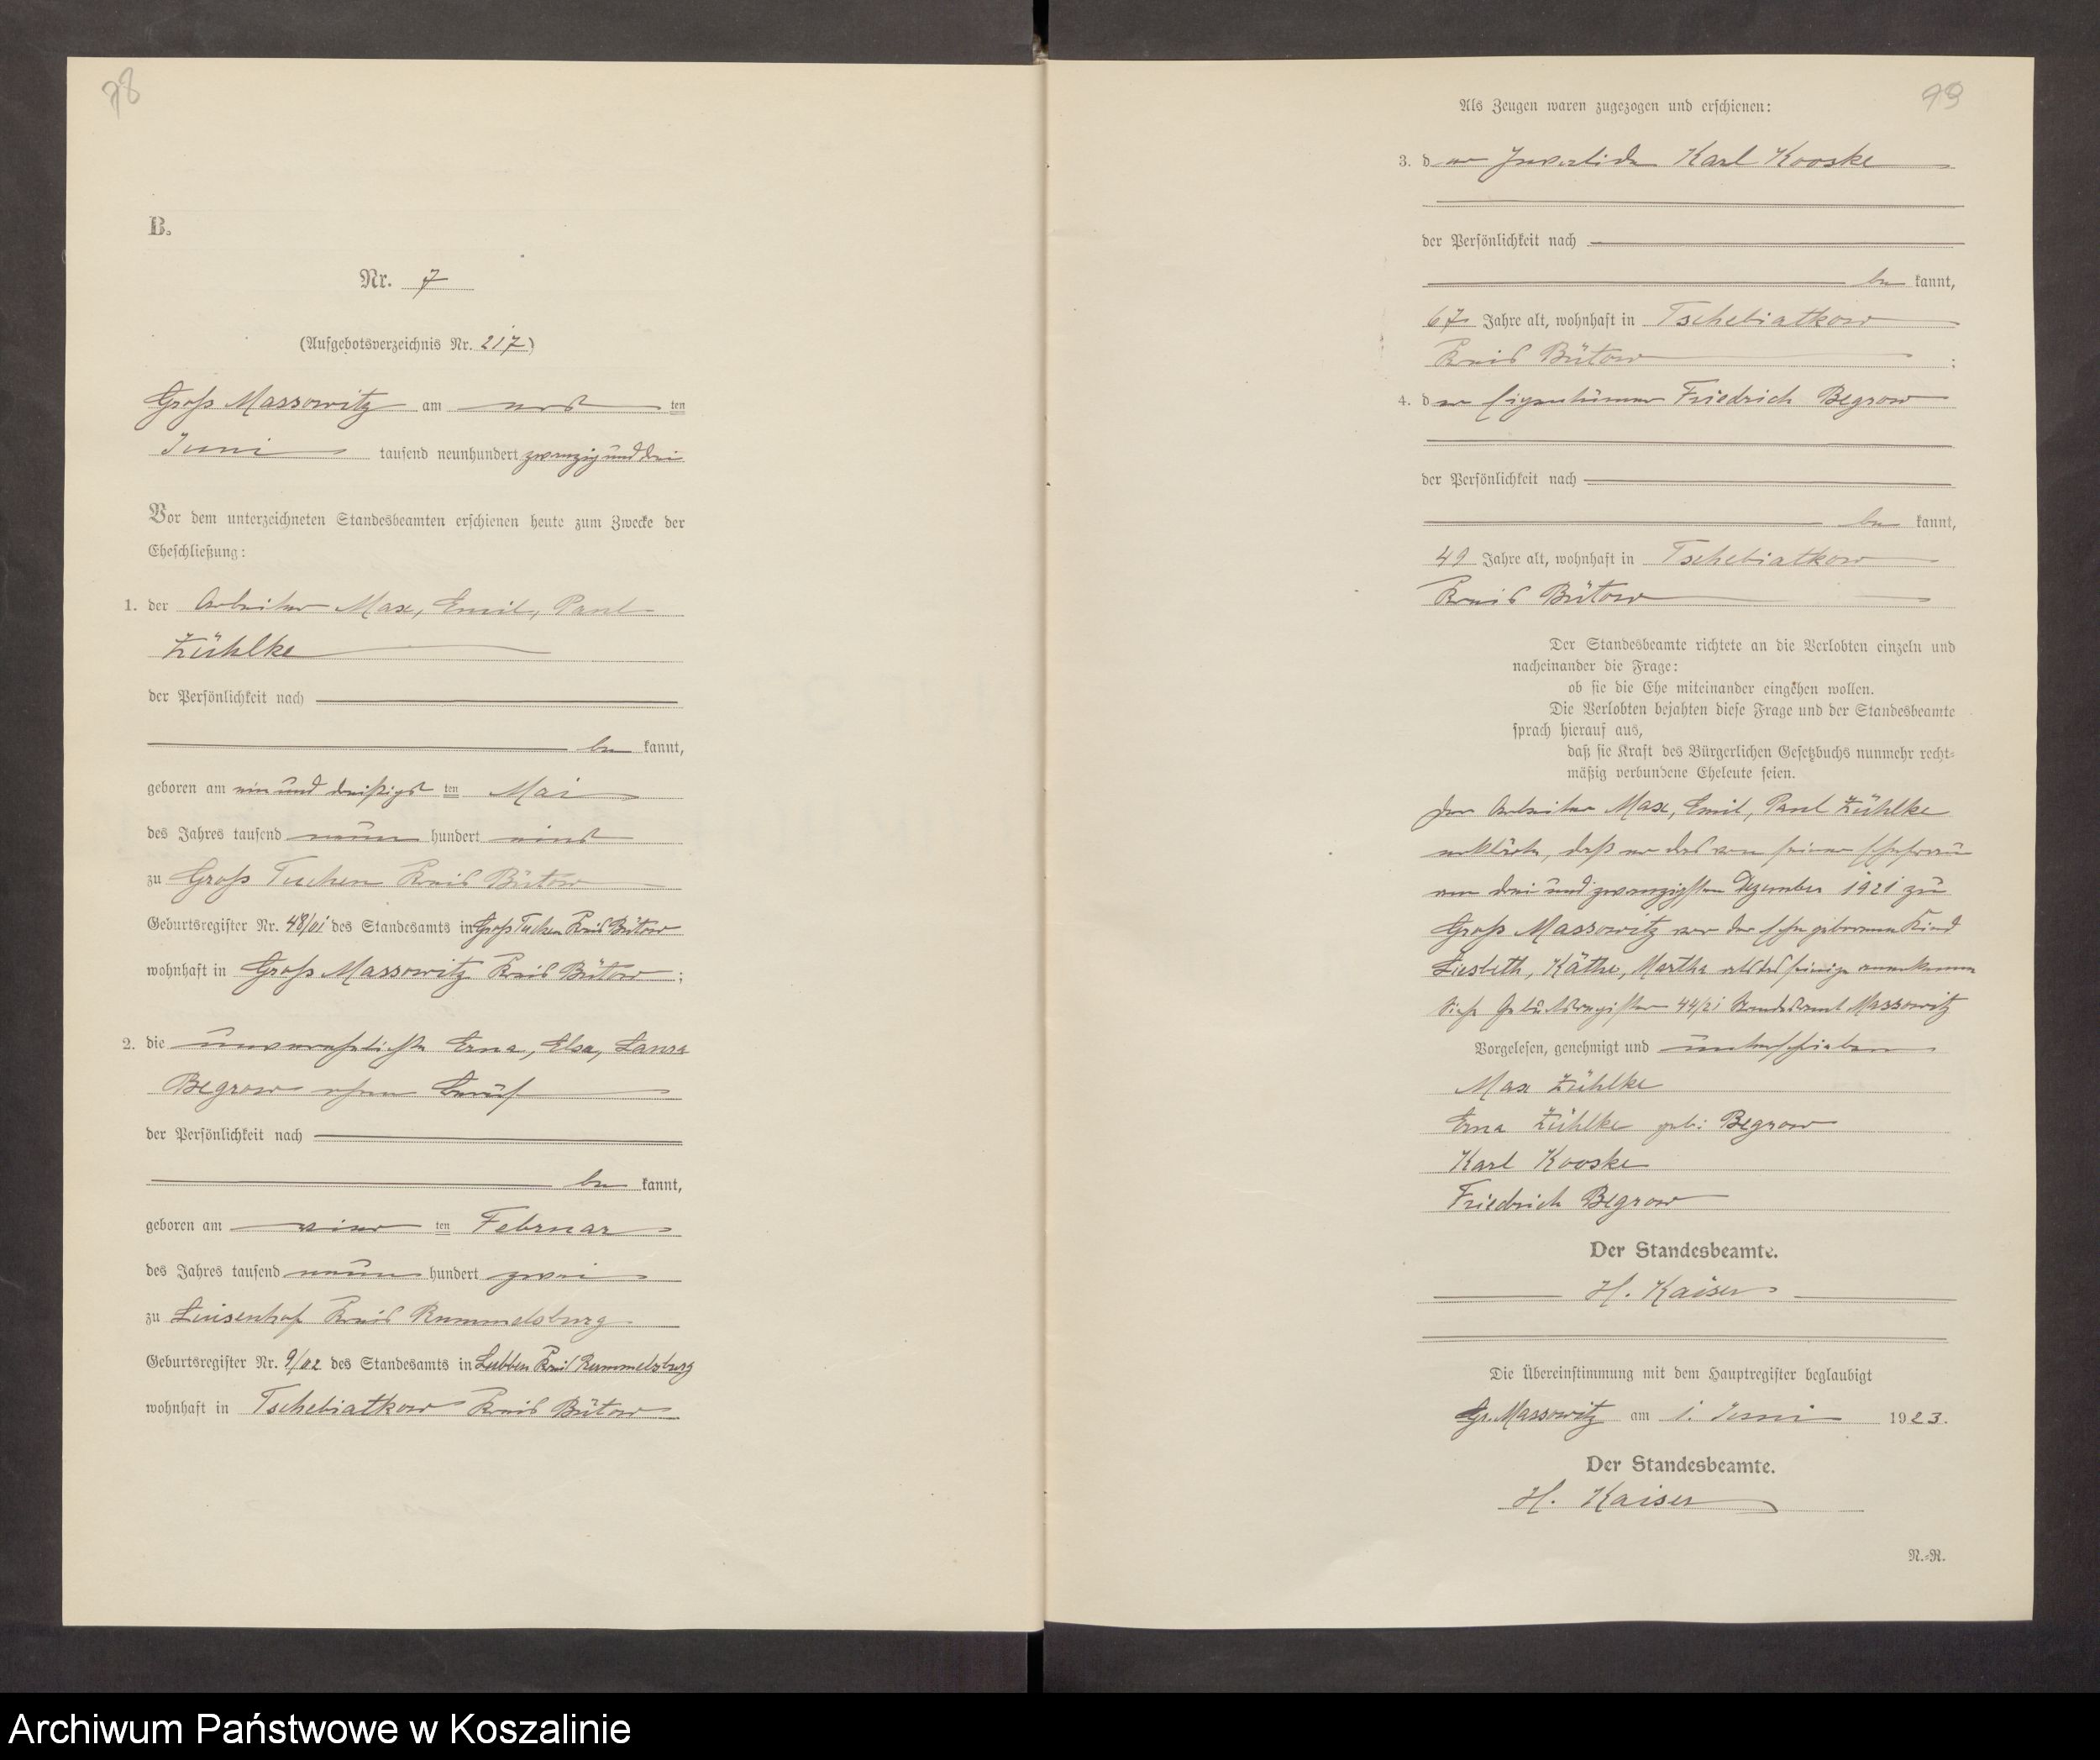 98
B.
Nr. 7
(Aufgebotsverzeichnis Nr. 217)
Groß Massowitz am erst ten
Juni tausend neunhundert zwanzig und drei
Vor dem unterzeichneten Standesbeamten erschienen heute zum Zwecke der
Eheschließung:
1. der Arbeiter Max, Emil, Paul
Zühlke
der Persönlichkeit nach
be kannt,
geboren am ein und dreißigst ten Mai
des Jahres tausend neun hundert eins
zu Groß Tuchen Kreis Bütow
Geburtsregister Nr. 48/01 des Standesamts in Groß Tuchen Kreis Bütow
wohnhaft in Groß Massowitz Kreis Bütow ;
2. die unverehelichte Erna, Elsa, Laura
Begrow ohne Beruf
der Persönlichkeit nach
be kannt,
geboren am vier ten Februar
des Jahres tausend neun hundert zwei
zu Luisenhof Kreis Rummelsburg
Geburtsregister Nr. 9/02 des Standesamts in Lubben Kreis Rummelsburg
wohnhaft in Tschebiatkow Kreis Bütow
99
Als Zeugen waren zugezogen und erschienen:
3. d er Invalide Karl Kooske
der Persönlichkeit nach
be kannt,
67 Jahre alt, wohnhaft in Tschebiatkow
Kreis Bütow ;
4. d er Eigentümer Friedrich Begrow
der Persönlichkeit nach
be kannt,
49 Jahre alt, wohnhaft in Tschebiatkow
Kreis Bütow
Der Standesbeamte richtete an die Verlobten einzeln und
nacheinander die Frage:
ob sie die Ehe miteinander eingehen wollen.
Die Verlobten bejahten diese Frage und der Standesbeamte
sprach hierauf aus,
daß sie Kraft des Bürgerlichen Gesetzbuchs nunmehr recht-
mäßig verbundene Eheleute seien.
Der Arbeiter Max, Emil, Paul Zühlke
erklärte, daß er das von seiner Ehefrau
am drei und zwanzigsten Dezember 1921 zu
Groß Massowitz vor der Ehe geborene Kind
Liesbeth, Käthe, Martha als das seinige anerkenne
Siehe Geburtsregister 44/21 Standesamt Massowitz
Vorgelesen, genehmigt und unterschrieben
Max Zühlke
Erna Zühlke geb: Begrow
Karl Kooske
Friedrich Begrow
Der Standesbeamte.
H. Kaiser
Die Übereinstimmung mit dem Hauptregister beglaubigt
Gr. Massowitz am 1. Juni 1923.
Der Standesbeamte.
H. Kaiser
N.-R.
Archiwum Państwowe w Koszalinie